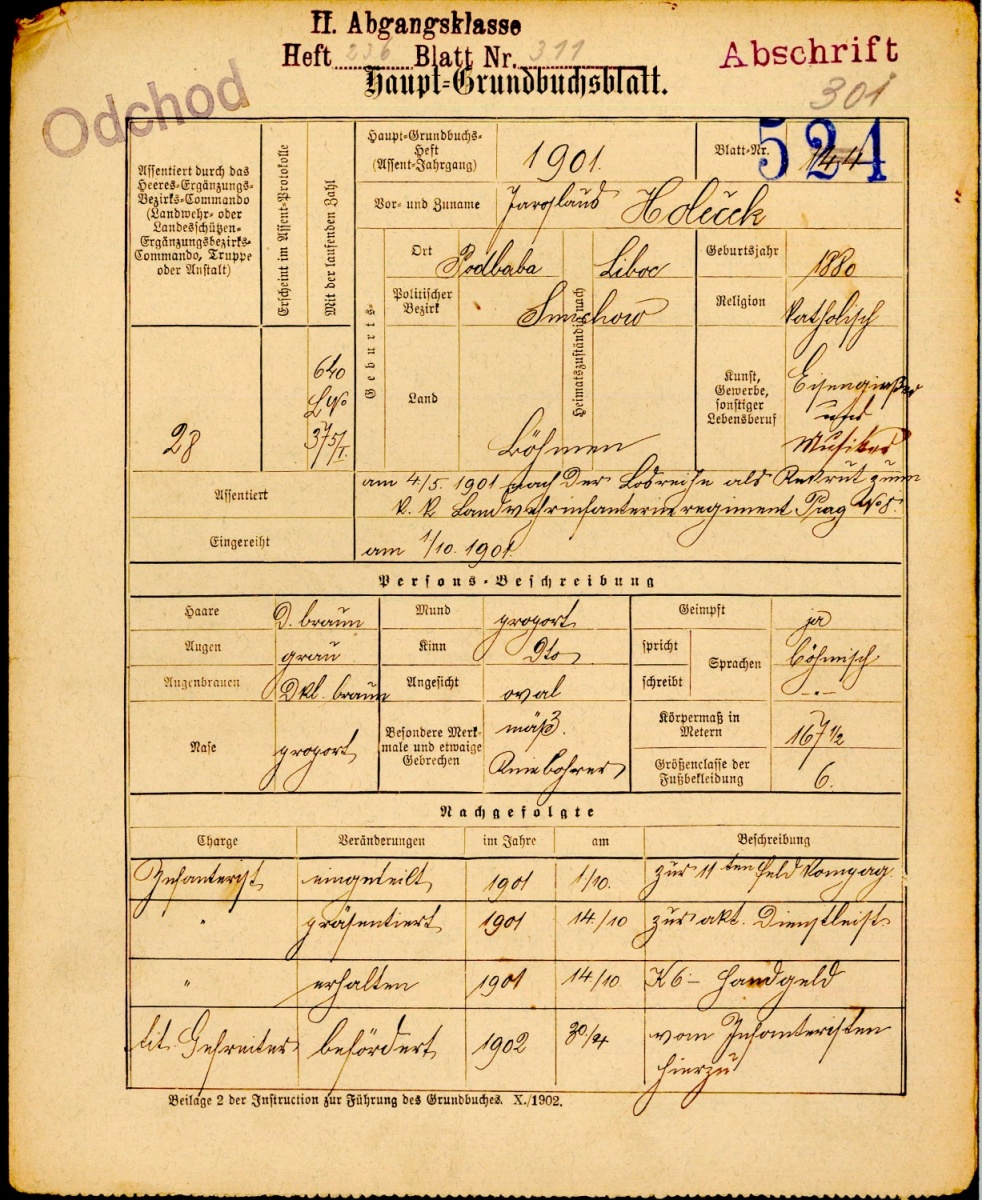 II. Abgangsklasse
Heft 236 Blatt Nr. 311
Abschrift
Haupt-Grundbuchsblatt.
Odchod
301
Assentiert durch das
Heeres-Ergänzungs-
Bezirks-Commando
(Landwehr- oder
Landesschützen-
Ergänzungsbezirks-
Commando, Truppe
oder Anstalt)
Erscheint im Assent-Protokolle
Mit der laufenden Zahl
Haupt-Grundbuchs-
Heft
(Assent-Jahrgang)
1901.
Blatt-Nr.
524
Vor- und Zuname
Jaroslaus Holeček
Geburts-
Ort
Podbaba
Liboc
Geburtsjahr
1880
Politischer
Bezirk
Smichow
Heimatszuständig nach
Religion
katholisch
Land
Böhmen
Kunst,
Gewerbe,
sonstiger
Lebensberuf
Eisengießer
und
Musiker
28
640
375/I.
Assentiert
am 4/5. 1901 nach der Losreihe als Rekrut zum
k. k. Landwehrinfanterieregiment Prag No 8.
Eingereiht
am 1/10. 1901.
Persons-Beschreibung
Haare
D. braun
Mund
proport.
Geimpft
ja
Augen
grau
Kinn
Dto
spricht
schreibt
Sprachen
böhmisch
-"-
Augenbrauen
Dkl. braun
Angesicht
oval
Nase
proport.
Besondere Merk-
male und etwaige
Gebrechen
mäß.
Kniebohrer
Körpermaß in
Metern
167 1/2
Größenclasse der
Fußbekleidung
6.
Nachgefolgte
Charge Veränderungen im Jahre am Beschreibung
Infanterist eingeteilt 1901 1/10. zur 11ten Feldkompag.
" präsentiert 1901 14/10 zur akt. Dienstleist.
" erhalten 1901 14/10 K 6 – Handgeld
tit. Gefreiter befördert 1902 30/4 vom Infanteristen
hierzu
Beilage 2 der Instruction zur Führung des Grundbuches. X./1902.